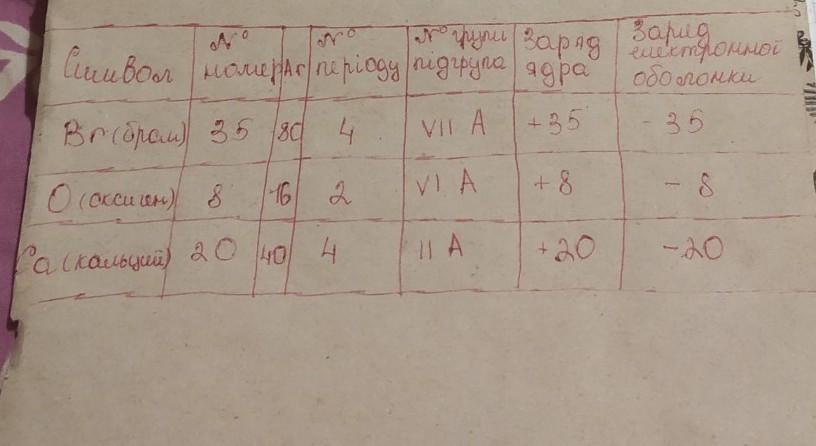 Символ | № номер | Ar | № періоду | № групи підгрупа | Заряд ядра | Заряд електронної оболонки
Br (бром) | 35 | 80 | 4 | VII A | +35 | - 35
O (оксиген) | 8 | 16 | 2 | VI A | +8 | - 8
Ca (кальций) | 20 | 40 | 4 | II A | +20 | -20